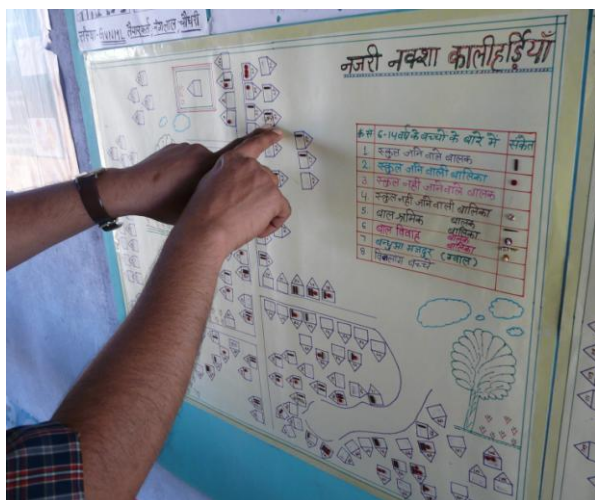 नजरी नक्शा कालीहर्ड़ियाँ
क्र.स 6-14 वर्ष के बच्चो के बारे में संकेत
1. स्कूल जाने वाले बालक
2. स्कूल जाने वाली बालिका
3. स्कूल नही जाने वाले बालक
4. स्कूल नही जाने वाली बालिका
5. बाल श्रमिक बालक
बालिका
6 बाल विवाह बालक
बालिका
बन्धुआ मजदूर (ग्वाल)
8 बच्चे